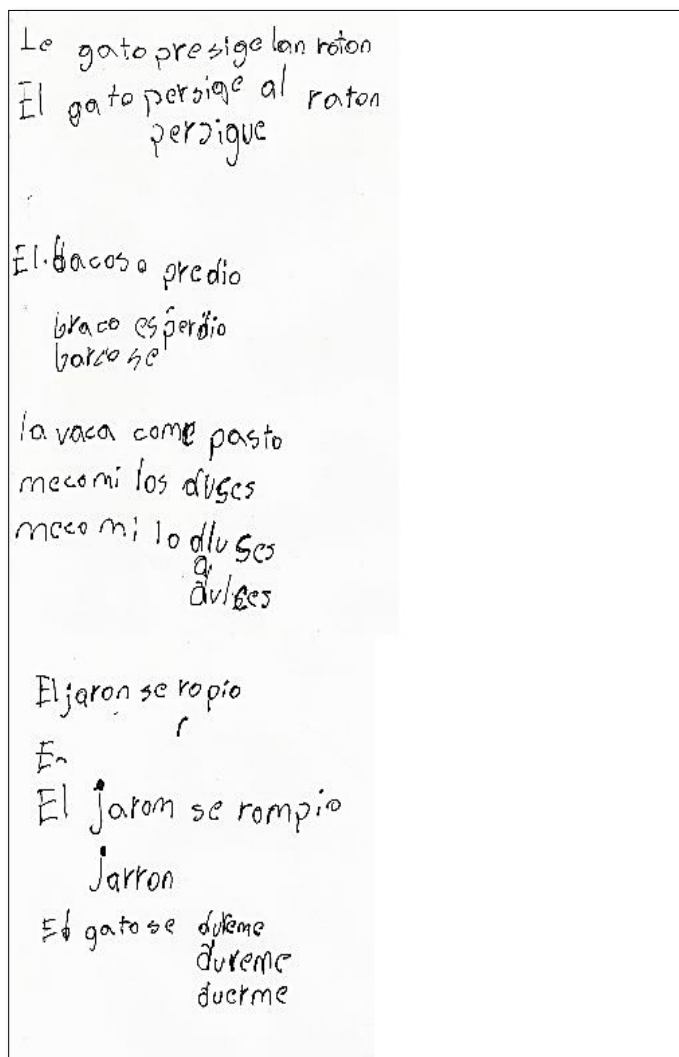 Le gato presige lan roton
El gato persige al raton
persigue
El bacoso predio
braco es perdio
barco se
la vaca come pasto
mecomi los duses
meco mi lo dluses
d
dulces
El jaron se ropio
r
En
El jarom se rompio
jarron
El gato se dureme
dureme
duerme